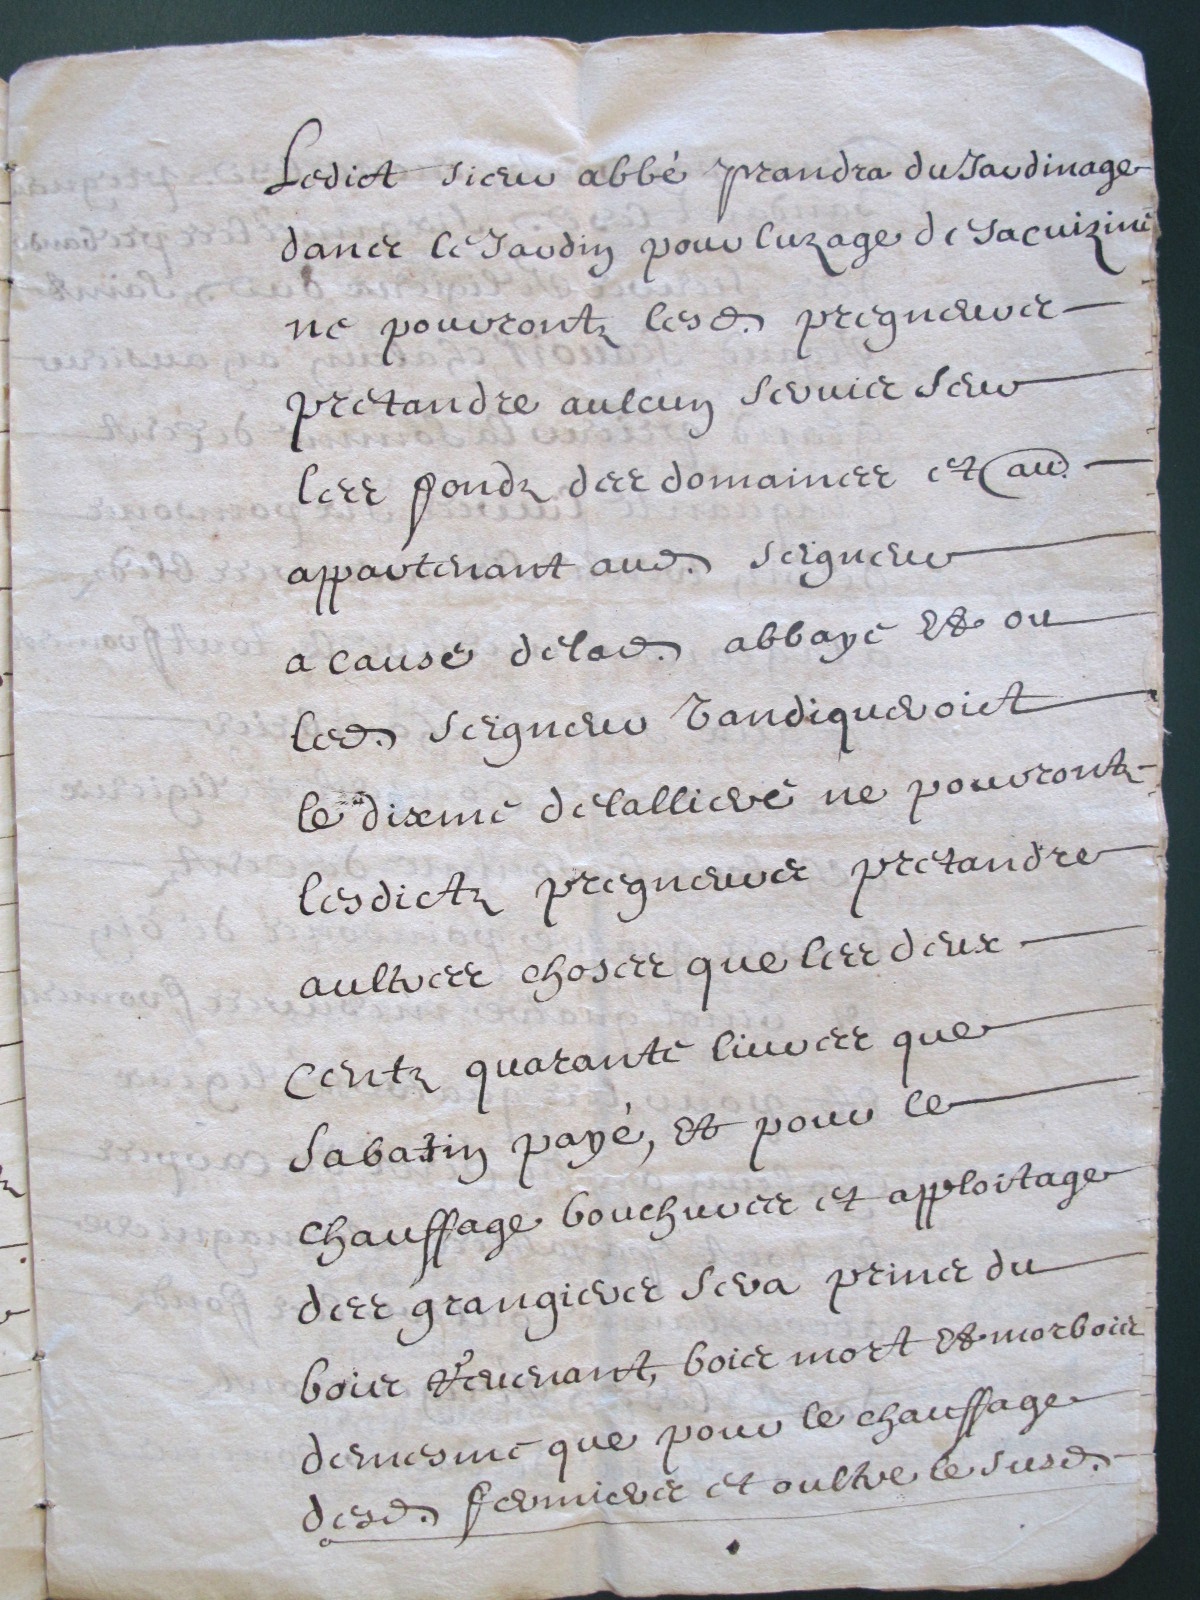 Ledict sieur abbé prandra du Jardinage
dans le Jardin pour luzage de sa cuizine
ne pourront lesd. preneurs
pretandre aulcun servis seur
les fondz des domaines et aud.
appartenant aud. seigneur
a cause delad. abbaye et ou
led. seigneur Tandiqueroict
le dixme delalliere ne pourront
lesdictz pregneurs pretandre
aultres choses que les deux
centz quarante livres que
Sabatin payé, et pour le
chauffage bouchures et apploitage
des grangiers sera prins du
bois revenant, bois mort et morbois
demesme que pour le chauffage
desd. fermiers et oultre le susd.